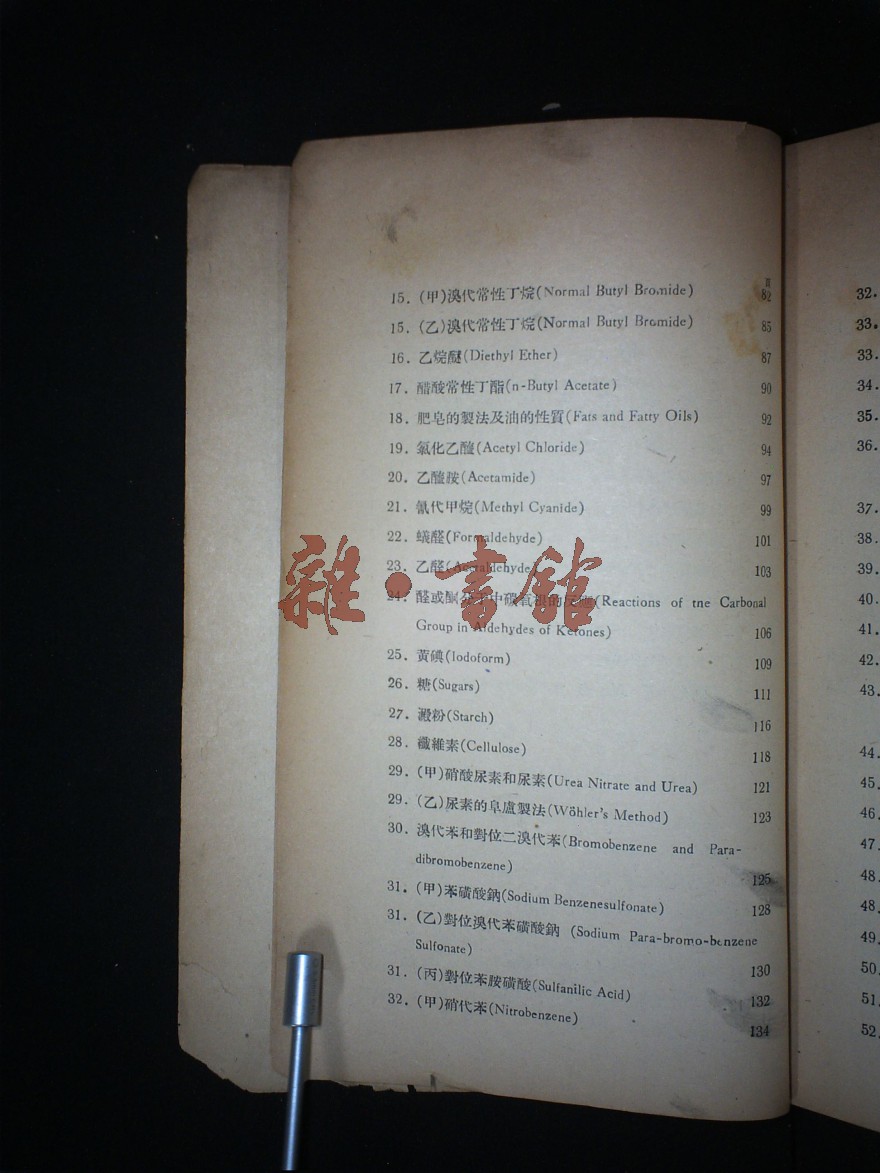 II
15. (甲)溴代常性丁烷(Normal Butyl Bromide) 82
15. (乙)溴代常性丁烷(Normal Butyl Bromide) 85
16. 乙烷醚(Diethyl Ether) 87
17. 醋酸常性丁酯(n-Butyl Acetate) 90
18. 肥皂的製法及油的性質(Fats and Fatty Oils) 92
19. 氯化乙醯(Acetyl Chloride) 94
20. 乙醯胺(Acetamide) 97
21. 氰代甲烷(Methyl Cyanide) 99
22. 蟻醛(Formaldehyde) 101
23. 乙醛(Acetaldehyde) 103
24. 醛或酮分子中碳氧根的反應(Reactions of tne Carbonal
Group in Aldehydes of Ketones) 106
25. 黃碘(Iodoform) 109
26. 糖(Sugars) 111
27. 澱粉(Starch) 116
28. 纖維素(Cellulose) 118
29. (甲)硝酸尿素和尿素(Urea Nitrate and Urea) 121
29. (乙)尿素的阜盧製法(Wöhler's Method) 123
30. 溴代苯和對位二溴代苯(Bromobenzene and Para-
dibromobenzene) 125
31. (甲)苯磺酸鈉(Sodium Benzenesulfonate) 128
31. (乙)對位溴代苯磺酸鈉 (Sodium Para-bromo-benzene
Sulfonate) 130
31. (丙)對位苯胺磺酸(Sulfanilic Acid) 132
32. (甲)硝代苯(Nitrobenzene) 134
雜·書館
32.
33.
33.
34.
35.
36.
37.
38.
39.
40.
41.
42.
43.
44.
45.
46.
47.
48.
48.
49.
50.
51.
52.